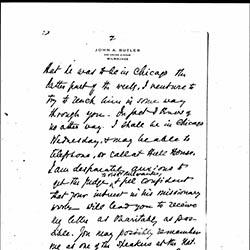 2
JOHN A. BUTLER
MILWAUKEE
that he was to be in Chicago the
latter part of the week, I venture to
try to reach him in some way
through you. In fact I know of
no other way. I shall be in Chicago
Wednesday, & may be able to
telephone, or call at Hull House.
I am desperately anxious to
get the Judge, & feel confident
that your interest in his missionary
work will lead you to receive
my letter as charitably as pos-
sible. You may possibly remember
me as one of the speakers at the Nat.